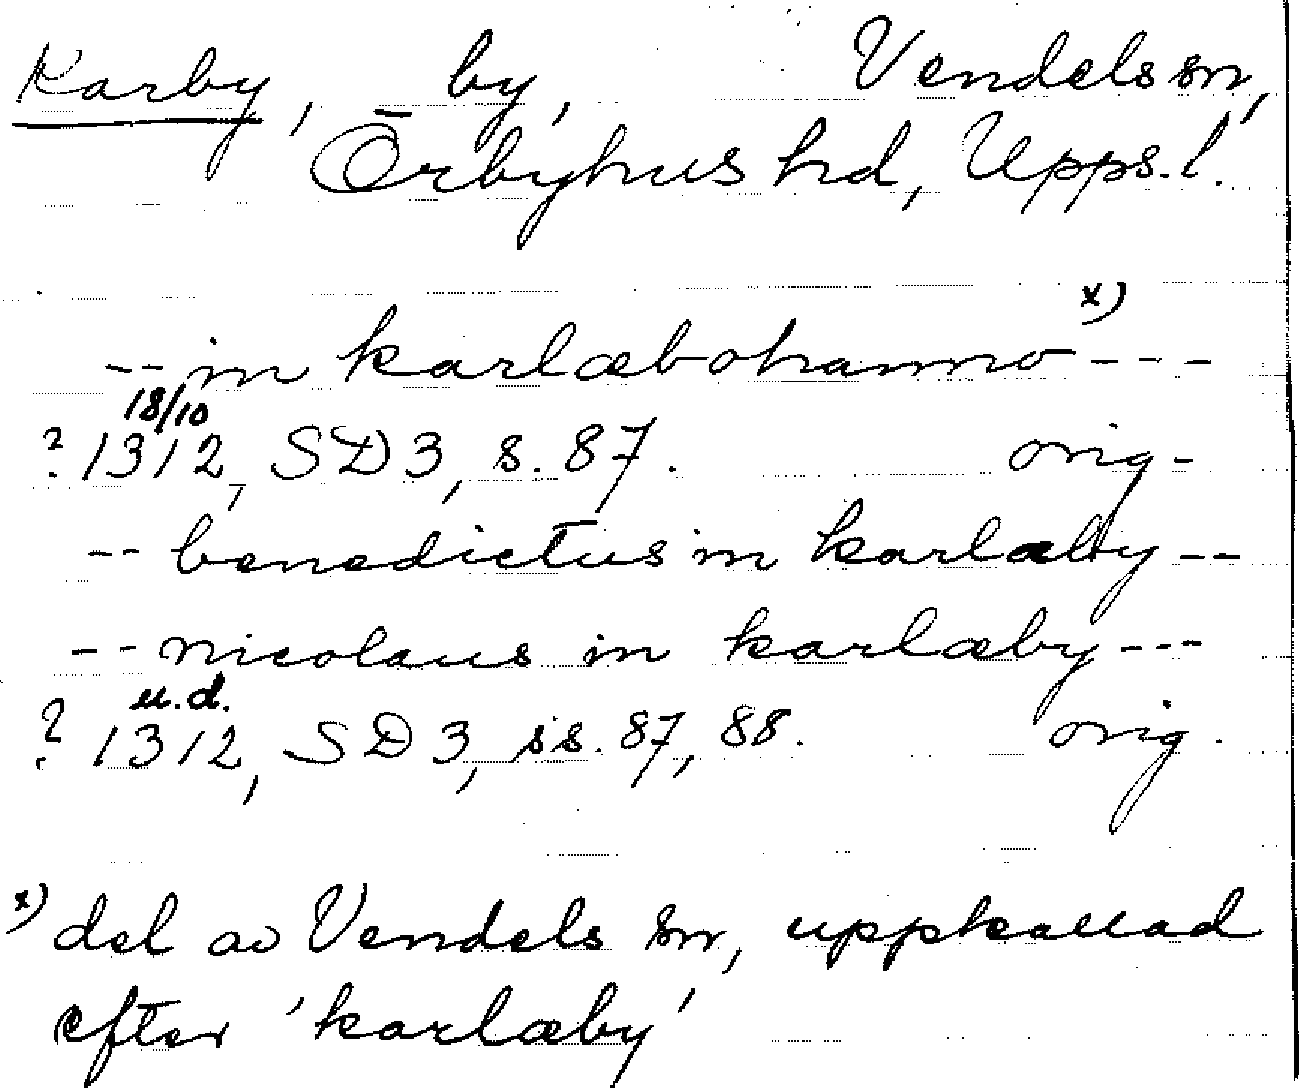 Karby, by, Vendels sn,
Örbyhus hd, Upps. l.
x)
-- in karlæbohamno ---
18/10
? 1312, SD 3, s. 87. orig -
-- benedictus in karlæby --
-- nicolaus in karlæby ---
u.d.
? 1312, SD 3, ss. 87, 88. orig.
x) del av Vendels sn, uppkallad
efter 'karlæby'